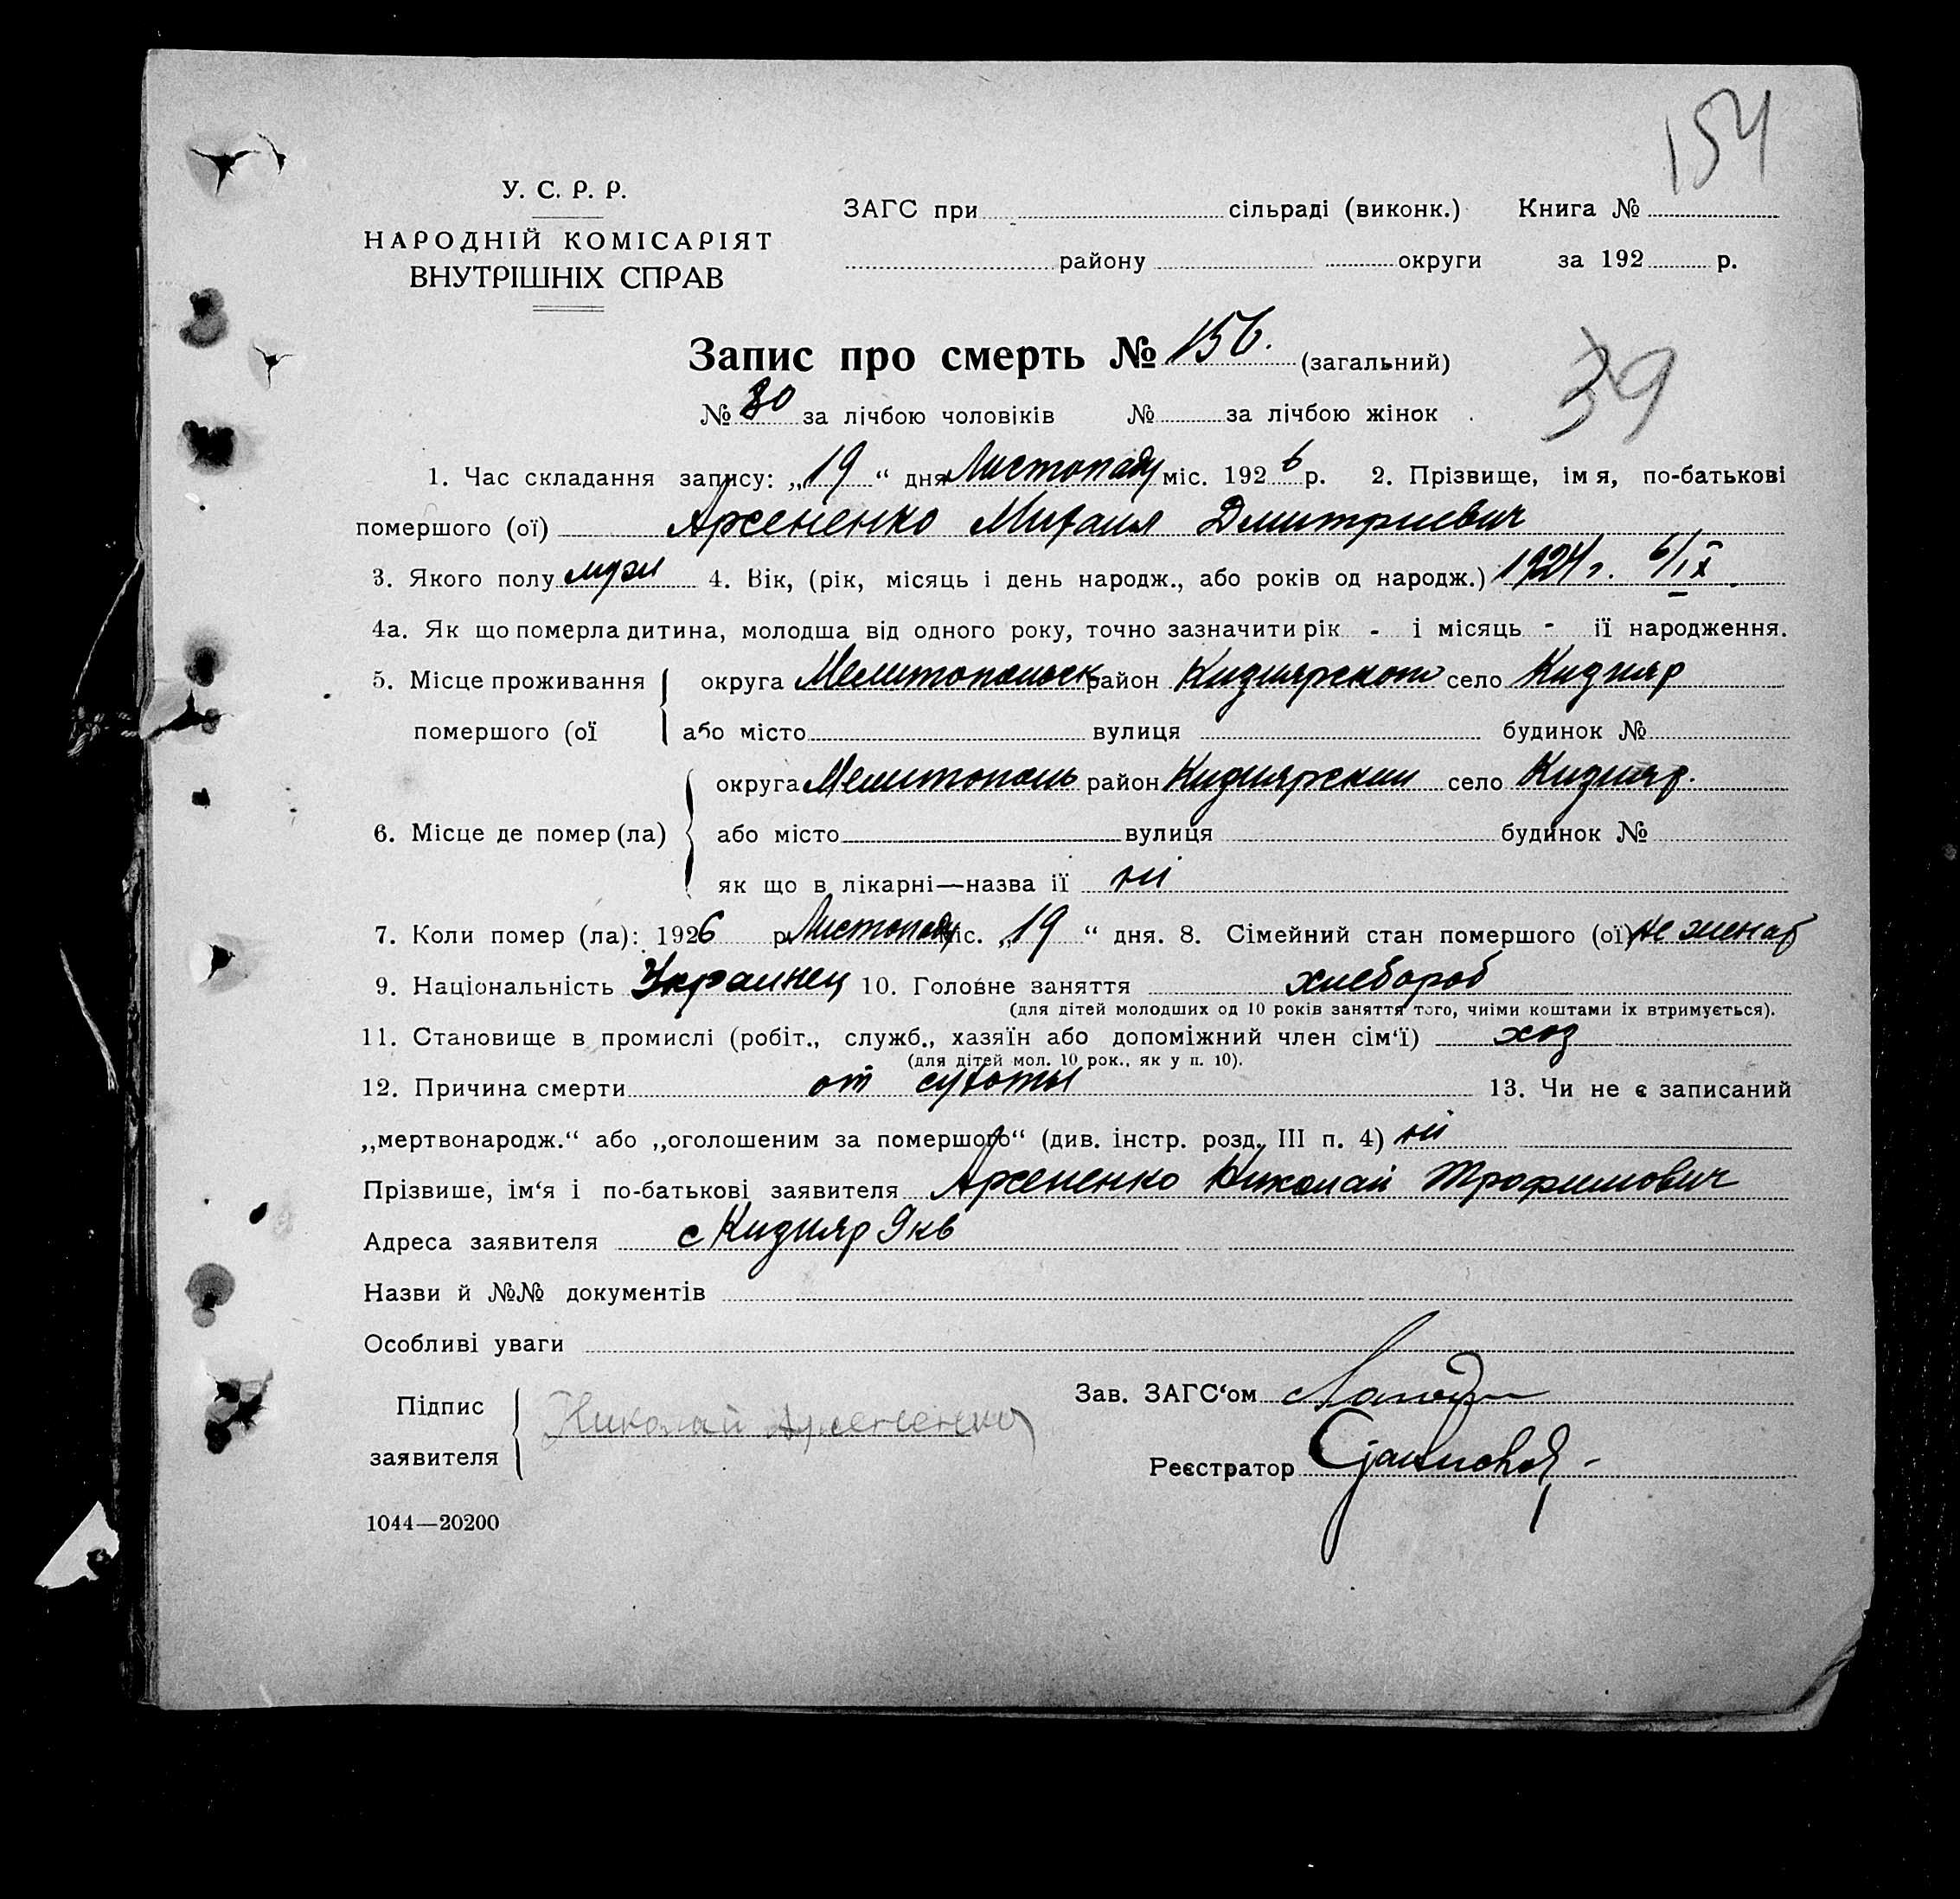 154
У. С. Р. Р.
НАРОДНІЙ КОМІСАРІЯТ
ВНУТРІШНІХ СПРАВ
ЗАГС при сільраді (виконк.) Книга №
району округи за 192 р.
Запис про смерть № 156. (загальний)
39
№ 80 за лічбою чоловіків № за лічбою жінок
1. Час складання запису: „19“ дня Листопаду міс. 1926 р. 2. Прізвище, імя, по-батькові
помершого (ої) Арсененко Михаил Дмитриевич
3. Якого полу муж 4. Вік, (рік, місяць і день народж., або років од народж.) 1924 г. 6/IX
4а. Як що померла дитина, молодша від одного року, точно зазначити рік - і місяць - її народження.
5. Місце проживання округа Мелитопольск район Кизиярского село Кизияр
помершого (ої або місто вулиця будинок №
округа Мелитополь район Кизиярский село Кизияр.
6. Місце де помер (ла) або місто вулиця будинок №
як що в лікарні—назва її ні
7. Коли помер (ла): 1926 р. Листопаду міс. „19“ дня. 8. Сімейний стан помершого (ої) не женат
9. Національність Украинец 10. Головне заняття хлебороб
(для дітей молодших од 10 років заняття того, чиїми коштами їх втримується).
11. Становище в промислі (робіт., служб., хазяїн або допоміжний член сім‘ї) хоз
(для дітей мол. 10 рок., як у п. 10).
12. Причина смерти от сухоты 13. Чи не є записаний
„мертвонародж.“ або „оголошеним за помершого“ (див. інстр. розд. III п. 4) ні
Прізвише, ім‘я і по-батькові заявителя Арсененко Николай Трофимович
Адреса заявителя с Кизияр 9 кв
Назви й №№ документів
Особливі уваги
Підпис
заявителя Николай Арсененко
Зав. ЗАГС‘ом
Реєстратор
1044—20200